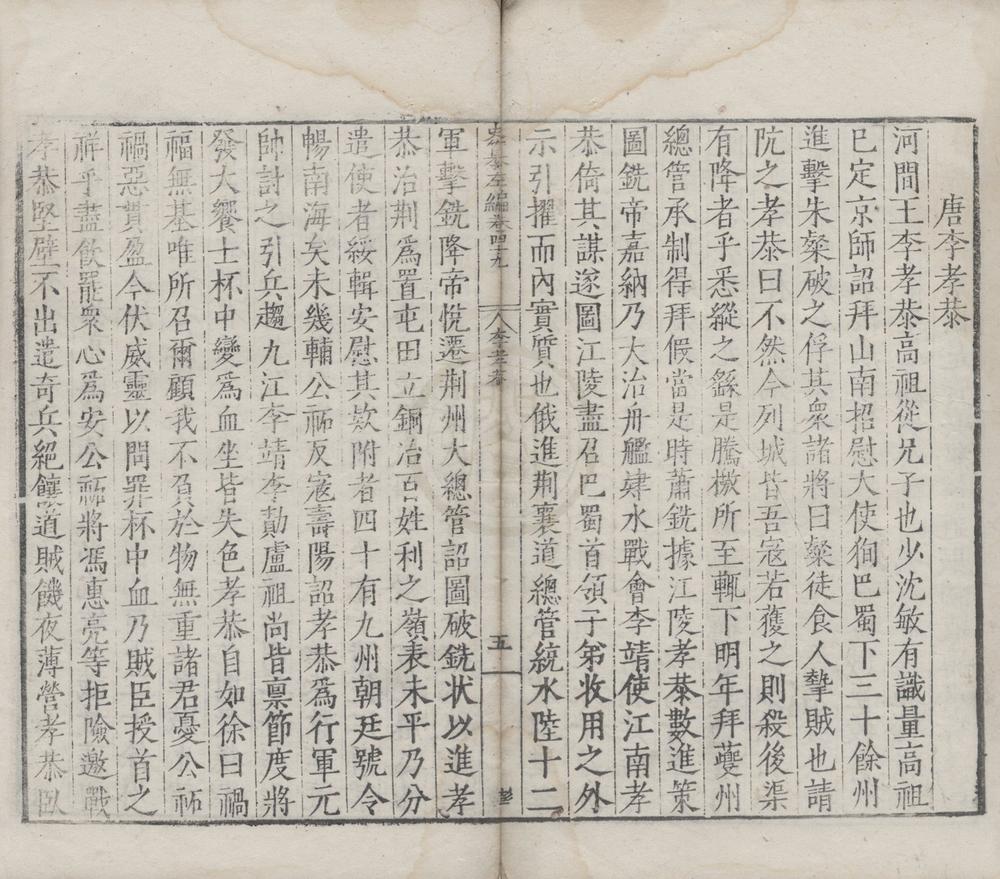 唐李孝恭
河間王李孝恭高祖從兄子也少沈敏有識量高祖
已定京師詔拜山南招慰大使狥巴蜀下三十餘州
進擊朱粲破之俘其衆諸將曰粲徒食人摯賊也請
阬之孝恭曰不然今列城皆吾寇若獲之則殺後渠
有降者乎悉縱之繇是騰檄所至輒下明年拜夔州
總管承制得拜假當是時蕭銑據江陵孝恭數進策
圖銑帝嘉納乃大治舟艦肄水戰會李靖使江南孝
恭倚其謀遂圖江陵盡召巴蜀首領子弟收用之外
示引擢而內實質也俄進荆襄道總管統水陸十二
左編卷四十九 李孝恭 五
軍擊銑降帝悅遷荆州大總管詔圖破銑状以進孝
恭治荆爲置屯田立銅冶百姓利之嶺表未平乃分
遣使者綏輯安慰其欵附者四十有九州朝廷號令
暢南海矣未幾輔公祏反寇壽陽詔孝恭爲行軍元
帥討之引兵趨九江李靖李勣盧祖尚皆禀節度將
發大饗士杯中變爲血坐皆失色孝恭自如徐曰禍
福無基唯所召爾顧我不負於物無重諸君憂公祏
禍惡貫盈今伏威靈以問罪杯中血乃賊臣授首之
祥乎盡飲罷衆心爲安公祏將馮惠亮等拒險邀戰
孝恭堅壁不出遣奇兵絕饟道賊饑夜薄營孝恭臥